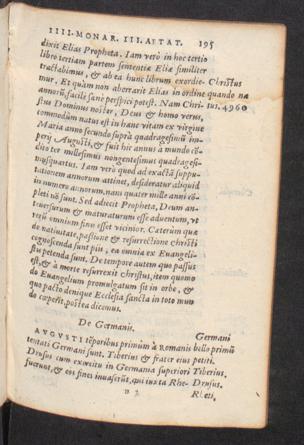 IIII. MONAR. III. AETAT. 195
dixit Elias Propheta. Iam verò in hoc tertio
libro tertiam partem sententiæ Eliæ similiter
tractabimus, & ab ea hunc librum exordie-
mur, Et quàm non aberrarit Elias in ordine quando na
annorū, facilè sanè perspici potest. Nam Chri-
Christus
tus. 4960
stus Dominus noster, Deus & homo verus,
commodùm natus est in hanc vitam ex virgine
Maria anno secundo suprà quadragesimū im-
perij Augusti, & fuit hic annus à mundo cō-
dito ter millesimus nongentesimus quadragesi-
musquartus. Iam verò quod ad exactā suppu-
tationem annorum attinet, desideratur aliquid
in numero annorum, nam quater mille anni cō-
pleti nō sunt. Sed adiecit Propheta, Deum an-
teuersurum & maturaturum esse aduentum,
rerū omnium finis esset vicinior. Caterùm quæ
de natiuitate, passione & resurrectione Christi
cognoscenda sunt pijs, ea omnia ex Euangelijs
petenda sunt. De tempore autem quo passus
est, & à morte resurrexit Christus, item quomo
do Euangelium promulgatum sit in orbe, &
quo pacto denique Ecclesia sancta in toto mun
do cœperit, postea dicemus.
De Germanis.
AVGVSTI tēporibus primùm à Romanis bello
Germani
primū
tentati Germani sunt. Tiberius & frater eius
petiti.
Drusus cum exercitu in Germania superiori
Tiberius.
fuerunt, & eos fines inuaserūt, qui iuxta Rhe-
Drusus.
n 2
Rheti,